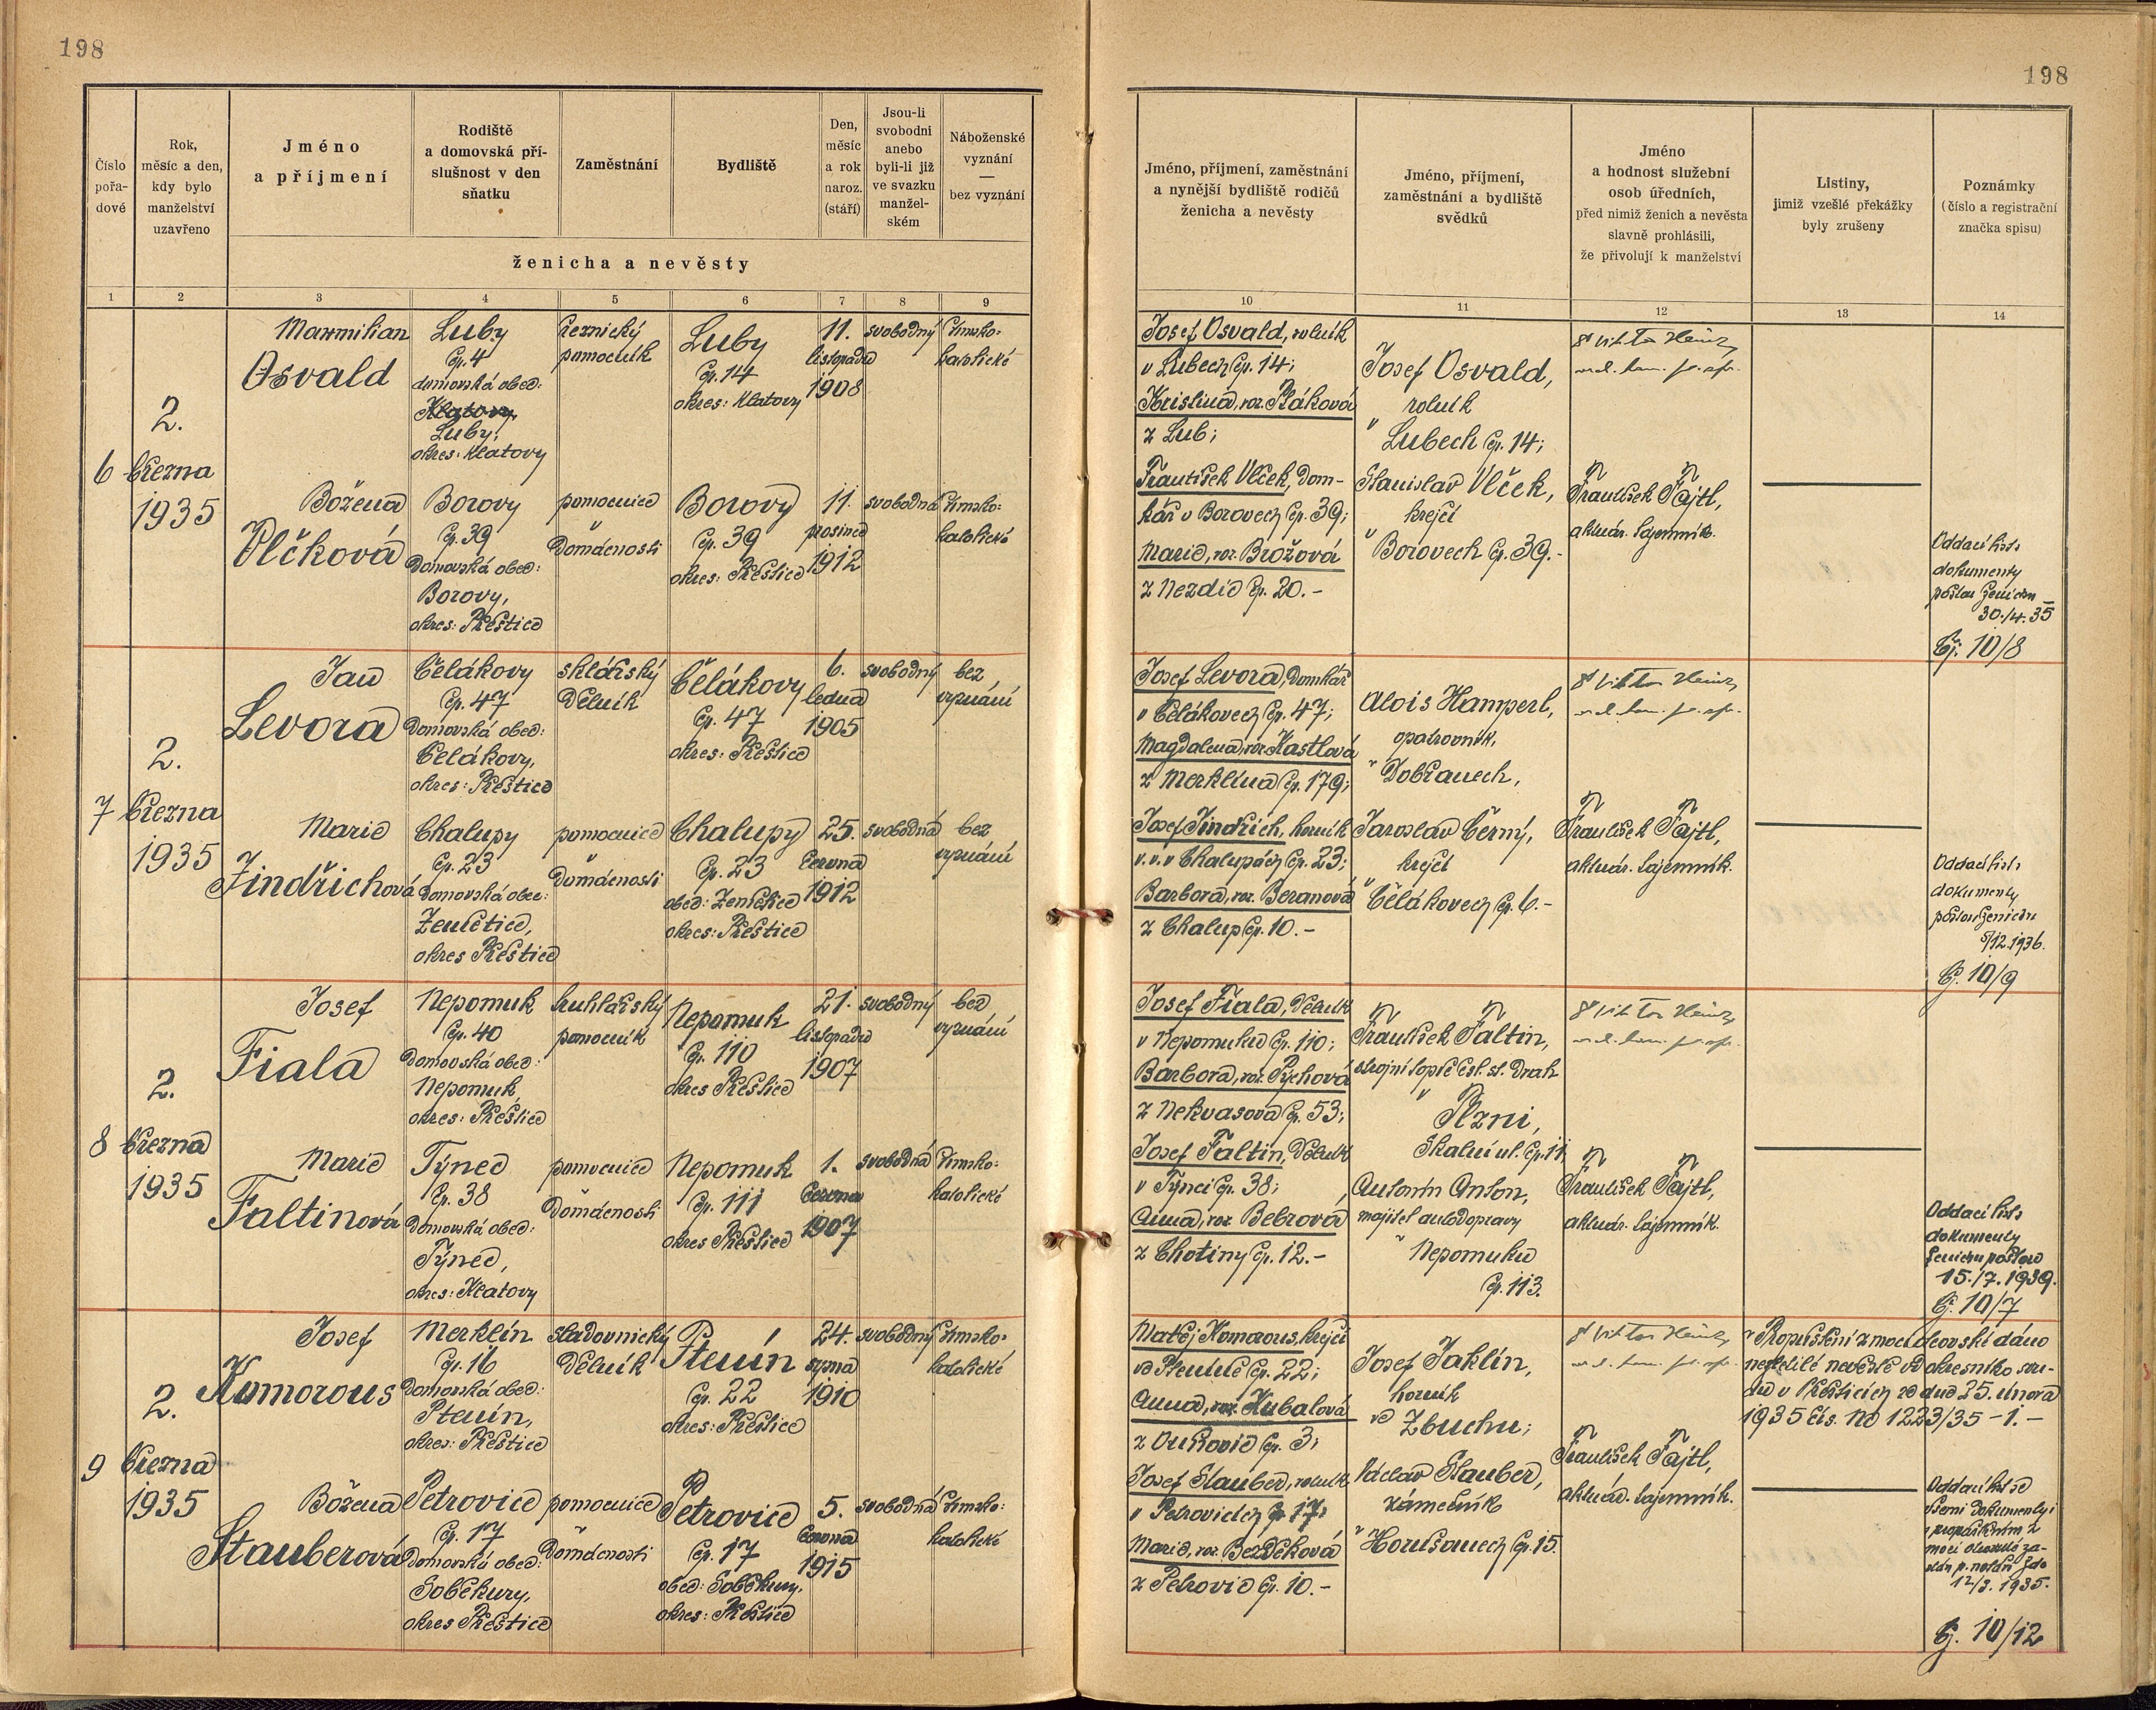 198
198
Číslo
pořa-
dové
Rok,
měsíc a den,
kdy bylo
manželství
uzavřeno
Jméno
a příjmení
Rodiště
a domovská pří-
slušnost v den
sňatku
Zaměstnání
Bydliště
Den,
měsíc
a rok
naroz.
(stáří)
Jsou-li
svobodni
anebo
byli-li již
ve svazku
manžel-
ském
Náboženské
vyznání
—
bez vyznání
ženicha a nevěsty
Jméno, příjmení, zaměstnání
a nynější bydliště rodičů
ženicha a nevěsty
Jméno, příjmení,
zaměstnání a bydliště
svědků
Jméno
a hodnost služební
osob úředních,
před nimiž ženich a nevěsta
slavně prohlásili,
že přivolují k manželství
Listiny,
jimiž vzešlé překážky
byly zrušeny
Poznámky
(číslo a registrační
značka spisu)
1 2 3 4 5 6 7 8 9
10 11 12 13 14
6
2.
března
1935
Maxmilian
Osvald
Luby
čp. 4
domovská obec:
Klatovy
Luby,
okres: Klatovy
řeznický
pomocník
Luby
čp. 14
okres: Klatovy
11.
listopadu
1908
svobodný
římsko-
katolické
Božena
Vlčková
Borovy
čp. 39
Domovská obec:
Borovy,
okres: Přeštice
pomocnice
v
Domácnosti
Borovy
čp. 39
okres: Přeštice
11.
prosince
1912
svobodná
římsko-
katolické
Josef Osvald, rolník
v Lubech čp. 14;
Kristina, roz. Ptáková
z Lub;
František Vlček, Dom-
kář v Borovech čp. 39;
Marie, roz. Brožová
z Nezdic čp. 20.-
Josef Osvald,
rolník
v
Lubech čp. 14;
Stanislav Vlček,
krejčí
v
Borovech čp. 39.-
Viktor Heinz
František Fajtl,
aktuár. tajemník.
Oddací list
dokumenty
poslán ženichu
30./4. 35
Čj. 10/8
7
2.
března
1935
Jan
Levora
Čelákovy
čp. 47
Domovská obec:
Čelákovy,
okres: Přeštice
sklářský
Dělník
Čelákovy
čp. 47
okres: Přeštice
6.
ledna
1905
svobodný
bez
vyznání
Marie
Jindřichová
Chalupy
čp. 23
Domovská obec:
Zemětice,
okres Přeštice
pomocnice
v
Domácnosti
Chalupy
čp. 23
obec: Zemětice
okres: Přeštice
25.
června
1912
svobodná
bez
vyznání
Josef Levora, Domkář
v Čelákovech čp. 47;
Magdalena, roz. Kastlová
z Merklína čp. 179;
Josef Jindřich, horník
v. v. v Chalupách čp. 23;
Barbora, roz. Beranová
z Chalup čp. 10.-
Alois Hamperl,
opatrovník,
v Dobřanech,
Jaroslav Černý,
krejčí
v
Čelákovech čp. 6.-
Viktor Heinz
František Fajtl,
aktuár. tajemník.
Oddací list
dokumenty
poslán ženichu
5/12.1936.
Čj. 10/9
8
2.
března
1935
Josef
Fiala
Nepomuk
čp. 40
Domovská obec:
Nepomuk,
okres: Přeštice
truhlářský
pomocník
Nepomuk
čp. 110
okres Přeštice
21.
listopadu
1907
svobodný
bez
vyznání
Marie
Faltinová
Týnec
čp. 38
Domovská obec:
Týnec,
okres: Klatovy
pomocnice
v
Domácnosti
Nepomuk
čp. 111
okres Přeštice
1.
června
1907
svobodná
římsko-
katolické
Josef Fiala, Dělník
v Nepomuku čp. 110;
Barbora, roz. Pýchová
z Nekvasova čp. 53;
Josef Faltin, Dělník
v Týnci čp. 38;
Anna, roz. Bebrová
z Chotiny čp. 12.-
František Faltin,
strojní topič čsl. st. Drah
v
Plzni,
Skalní ul. čp. 11,
Antonín Anton,
majitel autodopravy
v Nepomuku
čp. 113.
Viktor Heinz
František Fajtl,
aktuár. tajemník.
Oddací list
dokumenty
ženichu poslán
15./7. 1939.
Čj. 10/7
9
2.
března
1935
Josef
Komorous
Merklín
čp. 16
Domovská obec:
Ptenín,
okres: Přeštice
sladovnický
Dělník
Ptenín
čp. 22
okres: Přeštice
24.
srpna
1910
svobodný
římsko-
katolické
Božena
Stauberová
Petrovice
čp. 17
Domovská obec:
Soběkury,
okres Přeštice
pomocnice
v
Domácnosti
Petrovice
čp. 17
obec: Soběkury,
okres: Přeštice
5.
června
1915
svobodná
římsko-
katolické
Matěj Komorous, krejčí
ve Pteníně čp. 22;
Anna, roz. Kubalová
čp. 3;
Josef Stauber, rolník
v Petrovicích čp. 17;
Marie, roz. Bezděková
z Petrovic čp. 10.-
Josef Jaklín,
horník
ve Zbuchu;
Václav Stauber,
zámečník
v Horušanech čp. 15.
Viktor Heinz
František Fajtl,
aktuár. tajemník.
Propuštění z moci otcovské dáno
nezletilé nevěstě od okresního sou-
du v Přešticích ze dne 25. února
1935 čís. Nc 1223/35 - 1. -
Oddací list se
všemi dokumenty i
s propuštěním z
moci otcovské
12/3. 1935.
Čj. 10/12